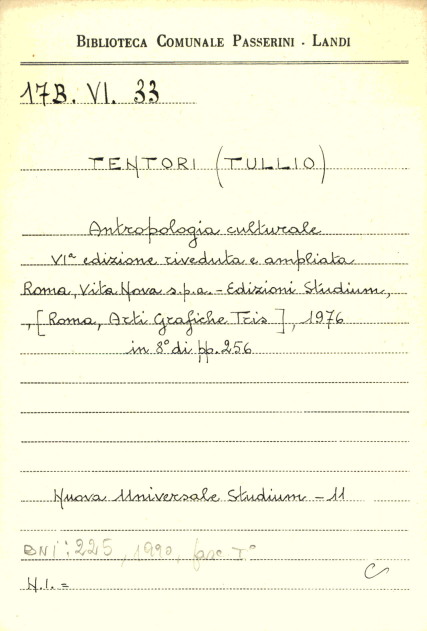 BIBLIOTECA COMUNALE PASSERINI - LANDI
17B. VI. 33
TENTORI (TULLIO)
Antropologia culturale
VIª edizione riveduta e ampliata
Roma, Vita Nova s.p.a. - Edizioni Studium,
, [Roma, Arti Grafiche Tris], 1976
in 8° di pp. 256
Nuova Universale Studium - 11
BNI: 225, 1990, fasc I°
N.I. =
C